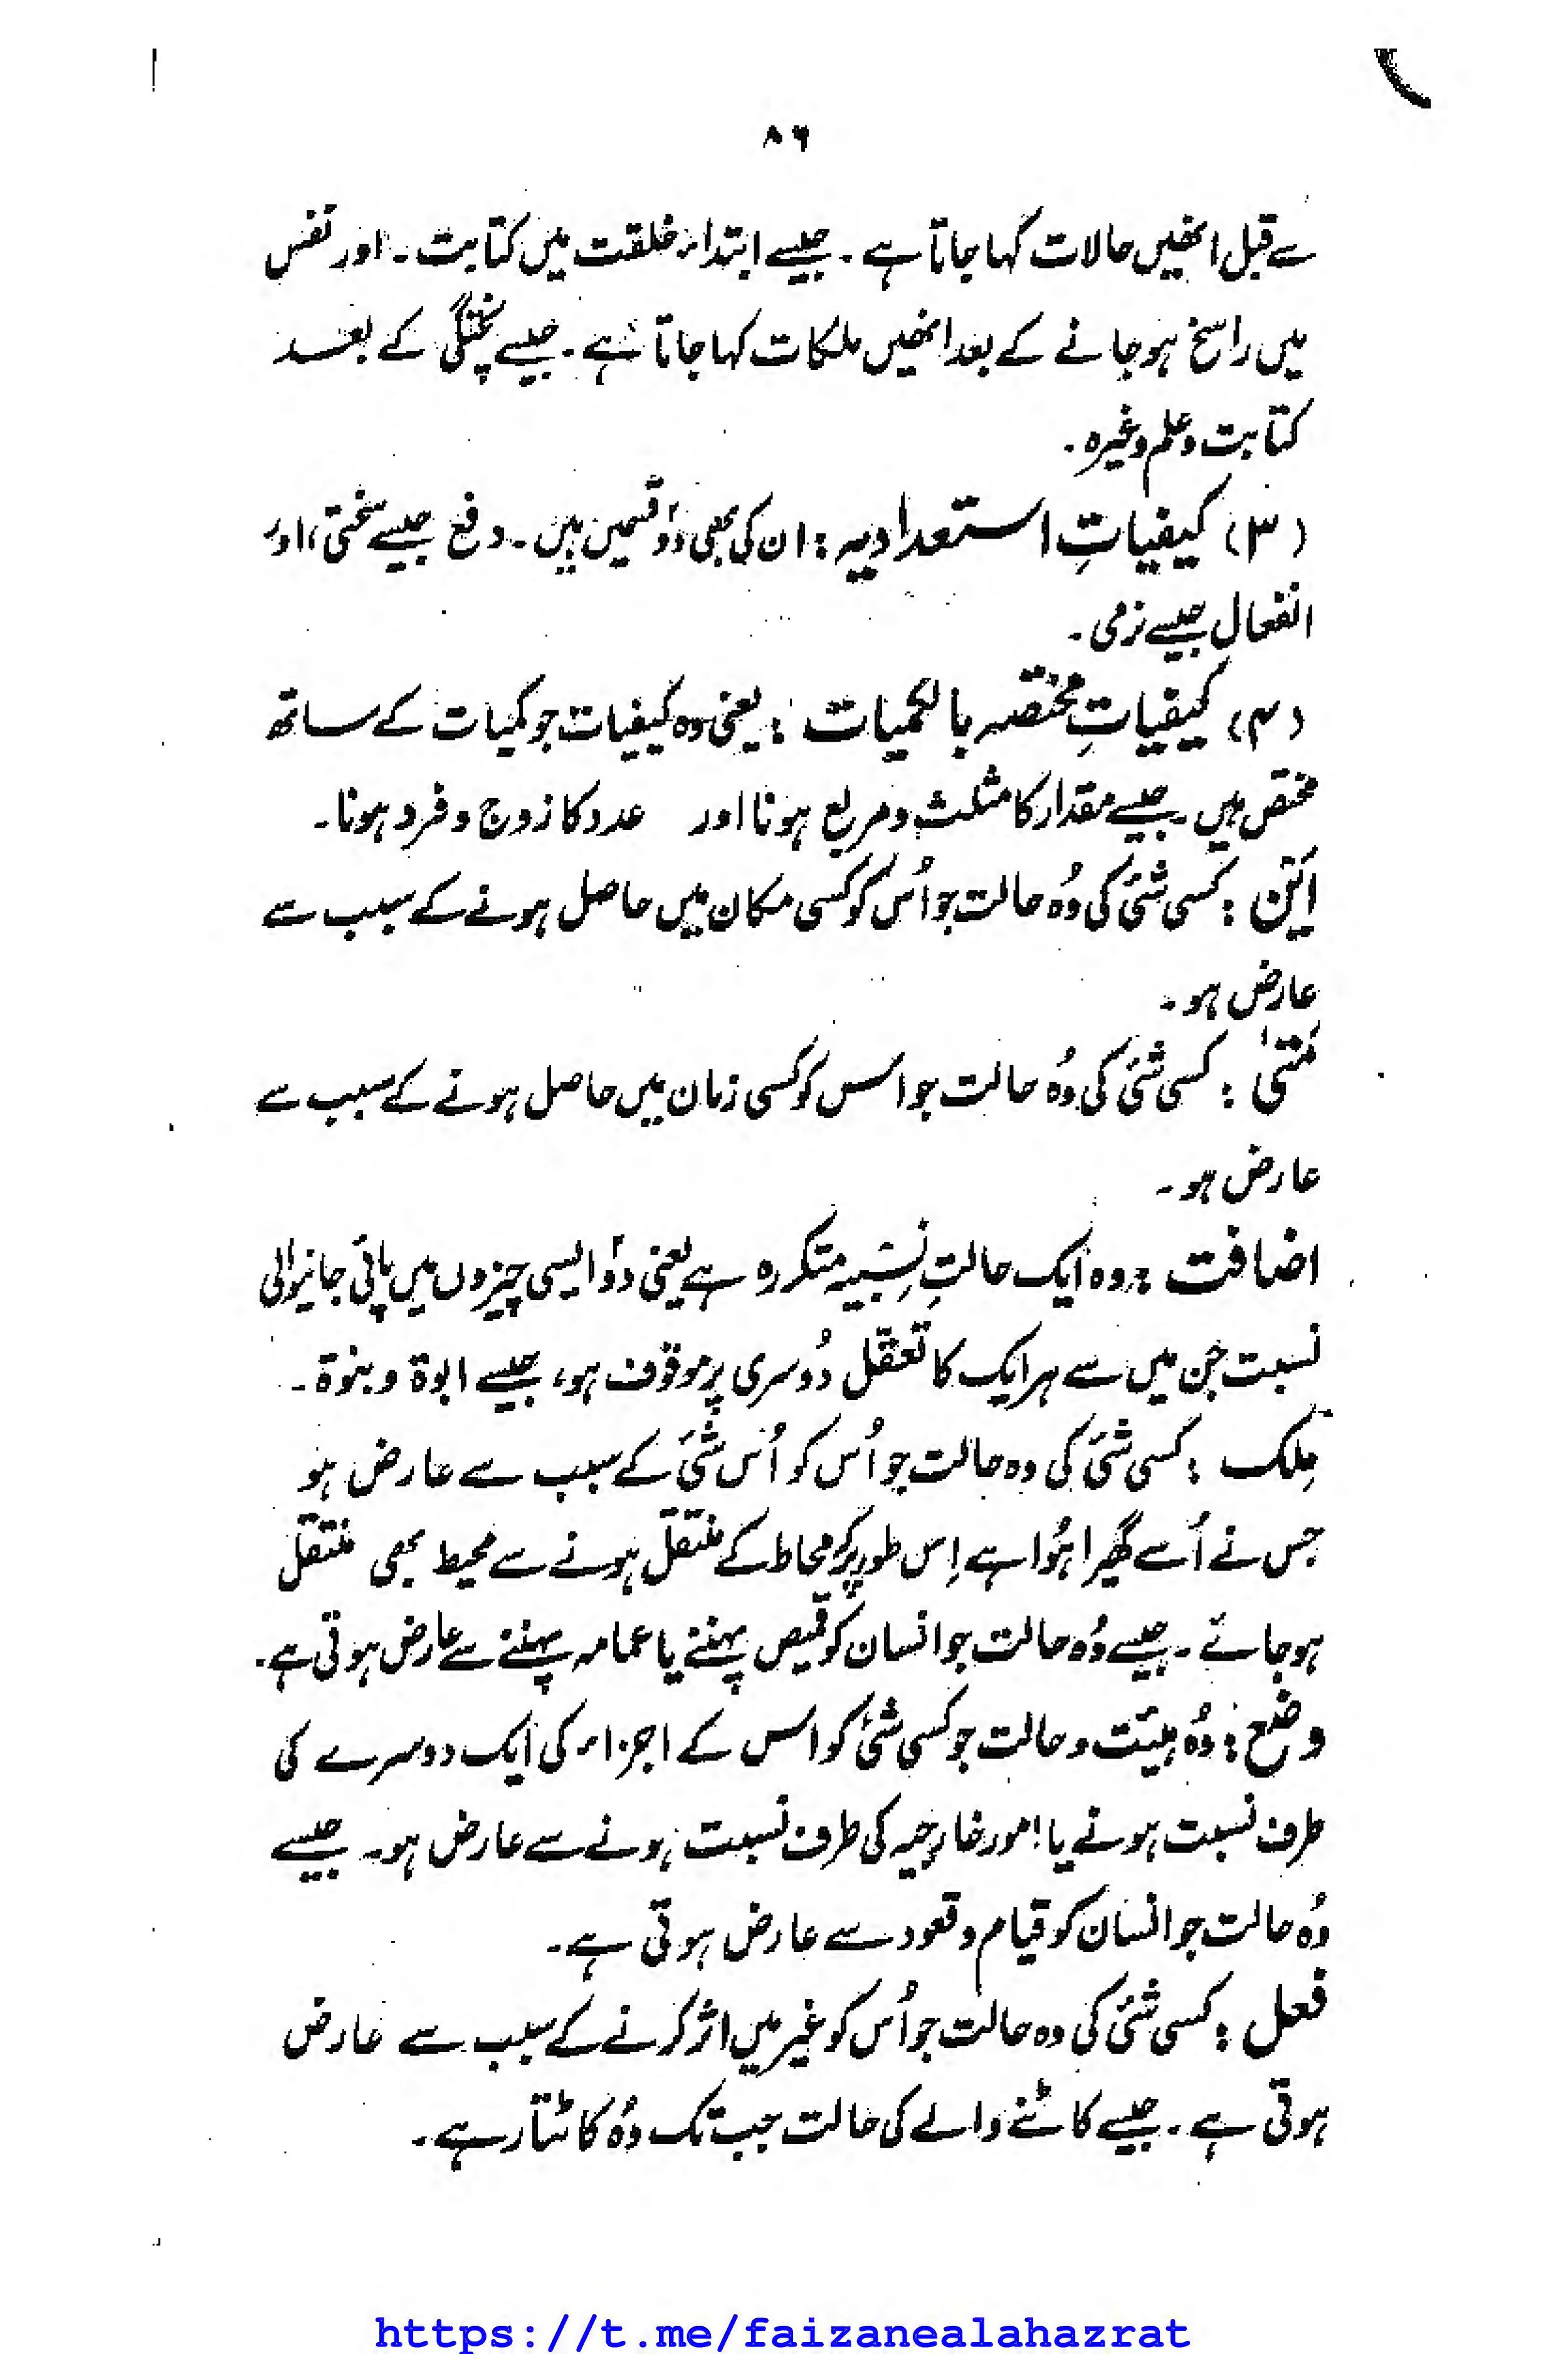 ٨٦
سے قبل انھیں حالات کہا جاتا ہے ۔ جیسے ابتداء خلقت میں کتابت ۔ اور نفس
میں راسخ ہوجانے کے بعد انھیں ملکات کہا جاتا ہے ۔ جیسے پختگی کے بعد
کتابت وعلم وغیرہ ۔
(۳) کیفیاتِ استعدادیہ : ان کی بھی دو قسمیں ہیں ۔ دفع جیسے سختی، اور
انفعال جیسے نرمی ۔
(۴) کیفیاتِ مختصہ بالکمیات : یعنی وہ کیفیات جو کمیات کے ساتھ
مختص ہیں ۔ جیسے مقدار کا مثلث ومربع ہونا اور عدد کا زوج و فرد ہونا ۔
اَیْن : کسی شئ کی وُہ حالت جو اُس کو کسی مکان میں حاصل ہونے کے سبب سے
عارض ہو ۔
مَتٰی : کسی شئ کی وُہ حالت جو اس کو کسی زمان میں حاصل ہونے کے سبب سے
عارض ہو ۔
اضافت : وہ ایک حالتِ نِسبیہ متکررہ ہے یعنی دو ایسی چیزوں میں پائی جانیوالی
نسبت جن میں سے ہر ایک کا تعقل دُوسری پر موقوف ہو، جیسے ابوۃ و بنوۃ ۔
مِلک : کسی شئ کی وہ حالت جو اُس کو اُس شئ کے سبب سے عارض ہو
جس نے اُسے گھیرا ہُوا ہے اِس طور پر کہ محاط کے منتقل ہونے سے محیط بھی منتقل
ہوجائے ۔ جیسے وُہ حالت جو انسان کو قمیص پہننے یا عمامہ پہننے سے عارض ہوتی ہے ۔
وضع : وُہ ہیئت و حالت جو کسی شئ کو اس کے اجزاء کی ایک دوسرے کی
طرف نسبت ہونے یا امور خارجیہ کی طرف نسبت ہونے سے عارض ہو ۔ جیسے
وُہ حالت جو انسان کو قیام وقعود سے عارض ہوتی ہے ۔
فعل : کسی شئ کی وہ حالت جو اُس کو غیر میں اثر کرنے کے سبب سے عارض
ہوتی ہے ۔ جیسے کاٹنے والے کی حالت جب تک وُہ کاٹتا رہے ۔
https://t.me/faizanealahazrat